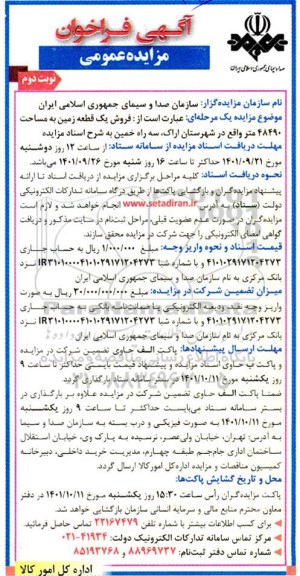 آگهی فراخوان
مزایده عمومی
صدا و سیمای جمهوری اسلامی ایران
نوبت دوم
نام سازمان مزایده‌گزار: سازمان صدا و سیمای جمهوری اسلامی ایران
موضوع مزایده یک مرحله‌ای: عبارت است از: فروش یک قطعه زمین به مساحت
۴۸۴۹۰ متر واقع در شهرستان اراک، سه راه خمین به شرح اسناد مزایده
مهلت دریافت اسناد مزایده از سامانه ستاد: از ساعت ۱۲ روز دوشنبه
مورخ ۱۴۰۱/۰۹/۲۱ حداکثر تا ساعت ۱۶ روز شنبه مورخ ۱۴۰۱/۰۹/۲۶ می‌باشد.
نحوه دریافت اسناد: کلیه مراحل برگزاری مزایده از دریافت اسناد تا ارائه
پیشنهاد مزایده‌گران و بازگشایی پاکت‌ها از طریق درگاه سامانه تدارکات الکترونیکی
دولت (ستاد) به آدرس www.setadiran.ir انجام خواهد شد و لازم است
مزایده‌گران در صورت عدم عضویت قبلی، مراحل ثبت‌نام در سایت مذکور و دریافت
گواهی امضای الکترونیکی را جهت شرکت در مزایده محقق سازند.
قیمت اسناد و نحوه واریز وجه: مبلغ ۱/۰۰۰/۰۰۰ ریال به حساب جاری
بانک مرکزی به نام سازمان صدا و سیمای جمهوری اسلامی ایران
میزان تضمین شرکت در مزایده: مبلغ ۳۰/۰۰۰/۰۰۰/۰۰۰ ریال به صورت
بانک مرکزی به نام سازمان صدا و سیمای جمهوری اسلامی ایران
مهلت ارسال پیشنهادها: پاکت الف حاوی تضمین شرکت در مزایده
و پاکت ب حاوی اسناد مزایده و پیشنهاد قیمت بایستی حداکثر تا ساعت ۹
روز یکشنبه مورخ ۱۴۰۱/۱۰/۱۱ در بستر سامانه ستاد بارگذاری گردد.
ضمنا پاکت الف حاوی تضمین شرکت در مزایده علاوه بر بارگذاری در
بستر سامانه ستاد می‌بایست حداکثر تا ساعت ۹ روز یکشنبه
مورخ ۱۴۰۱/۱۰/۱۱ به صورت فیزیکی و درب بسته به سازمان صدا و سیما
به آدرس: تهران، خیابان ولی‌عصر، نرسیده به پارک وی، خیابان استقلال
ساختمان اداری جام‌جم طبقه چهارم، مدیریت خرید داخلی، دبیرخانه
کمیسیون مناقصات و مزایده اداره کل امور کالا ارسال گردد.
محل و تاریخ گشایش پاکت‌ها:
پاکت مزایده‌گران رأس ساعت ۱۵:۳۰ روز یکشنبه مورخ ۱۴۰۱/۱۰/۱۱ در دفتر
معاون محترم منابع مالی و سرمایه انسانی سازمان بازگشایی خواهد شد.
برای کسب اطلاعات بیشتر با شماره تلفن ۲۲۱۶۷۴۷۹ تماس حاصل فرمائید.
مرکز تماس سامانه تدارکات الکترونیک دولت: ۴۱۹۳۴-۰۲۱
شماره تماس دفتر ثبت‌نام: ۸۸۹۶۹۷۳۷ و ۸۵۱۹۳۷۶۸
اداره کل امور کالا